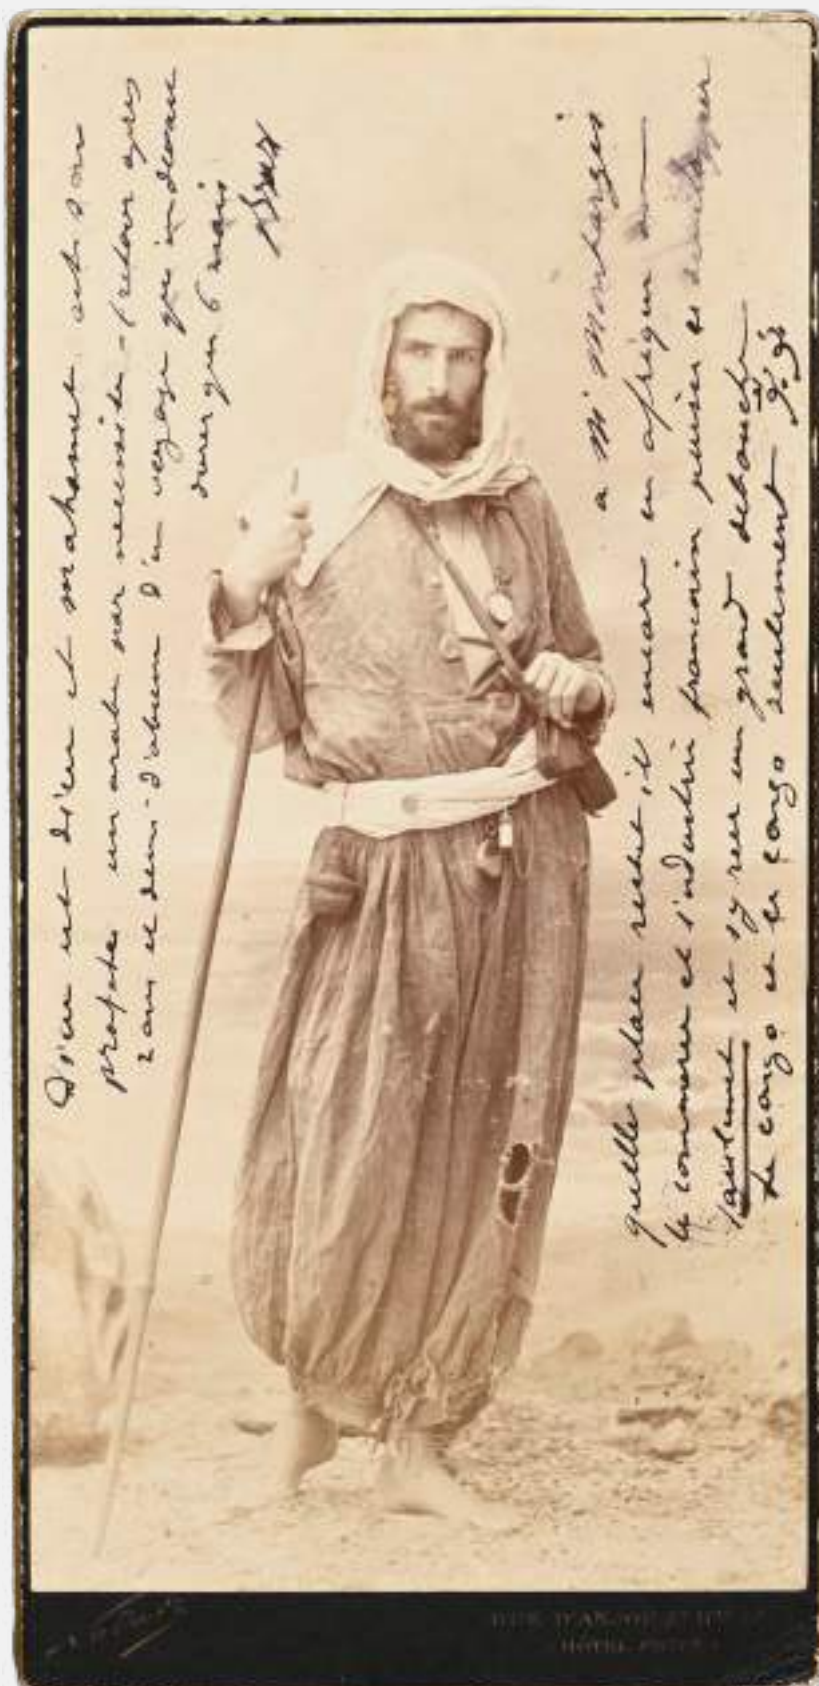 Dieu est dieu et mahomet est son
prophete un arabe par necessité - (retour apres
2 ans et demi d'absence d'un voyage qui ne devait
durer que 6 mois
a Mr Montargis
quelle place reste t il encore en afrique ou
le commerce et l'industrie francaise puisse se developper
et s'y creer un grand debouché
Le congo et le congo seulement
RUE D'ANJOU ST
HOTEL PRIVÉ